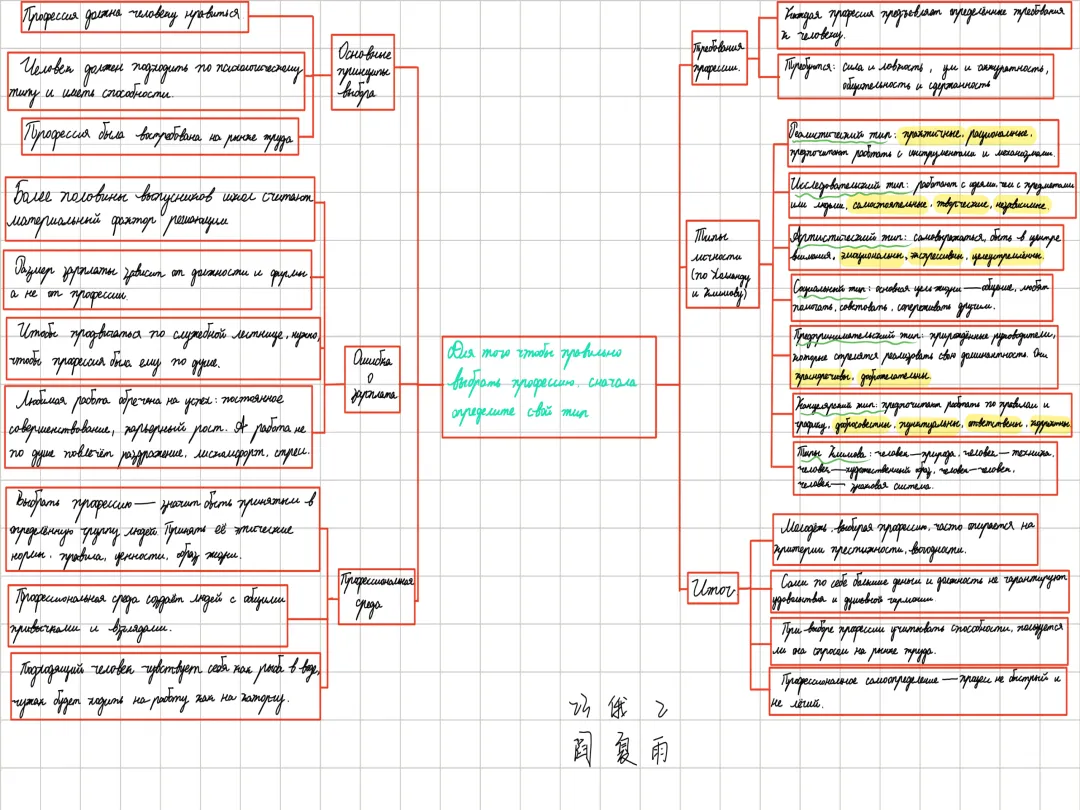 Профессия должна человеку нравиться
Человек должен подходить по психологическому
типу и иметь способности.
Профессия была востребована на рынке труда
Основные
принципы
выбора
Более половины выпускников школ считают
материальный фактор решающим
Размер зарплаты зависит от должности и фирмы
а не от профессии.
Чтобы продвигаться по служебной лестнице, нужно,
чтобы профессия была ему по душе.
Любимая работа обречена на успех: постоянное
совершенствование, карьерный рост. А работа не
по душе повлечёт раздражение, дискомфорт, стресс.
Ошибка
о
зарплате
Выбрать профессию — значит быть принятым в
определённую группу людей. Принять её этические
нормы, правила, ценности, образ жизни.
Профессиональная среда создаёт людей с общими
привычками и взглядами.
Подходящий человек чувствует себя как рыба в воде,
чужак будет ходить на работу как на каторгу.
Профессиональная
среда
Для того чтобы правильно
выбрать профессию, сначала
определите свой тип
Требования
профессии.
Каждая профессия предъявляет определённые требования
к человеку.
Требуются: сила и ловкость, ум и аккуратность,
общительность и сдержанность
Типы
личности
(по Холанду
и Климову)
Реалистический тип: практичные, рациональные,
предпочитают работать с инструментами и механизмами.
Исследовательский тип: работают с идеями, чем с предметами
или людьми, самостоятельные, творческие, независимые.
Артистический тип: самовыражаться, быть в центре
внимания, эмоциональны, экспрессивны, целеустремлённы.
Социальный тип: основная цель жизни — общение, любят
помогать, советовать, сопереживать другим.
Предпринимательский тип: прирождённые руководители,
которые стремятся реализовать свою доминантность. Они
прагматичны, доброжелательны.
Канцелярский тип: предпочитают работать по правилам и
графику, добросовестны, пунктуальны, ответственны, корректны.
Типы Климова: человек — природа, человек — техника,
человек — художественный образ, человек — человек,
человек — знаковая система.
Итог
Молодёжь, выбирая профессию, часто опирается на
критерии престижности, выгодности.
Сами по себе большие деньги и должность не гарантируют
удовольствия и душевной гармонии
При выборе профессии учитывать способности, пользуется
ли она спросом на рынке труда.
Профессиональное самоопределение — процесс не быстрый и
не лёгкий.
23 俄 2
闫 复 雨